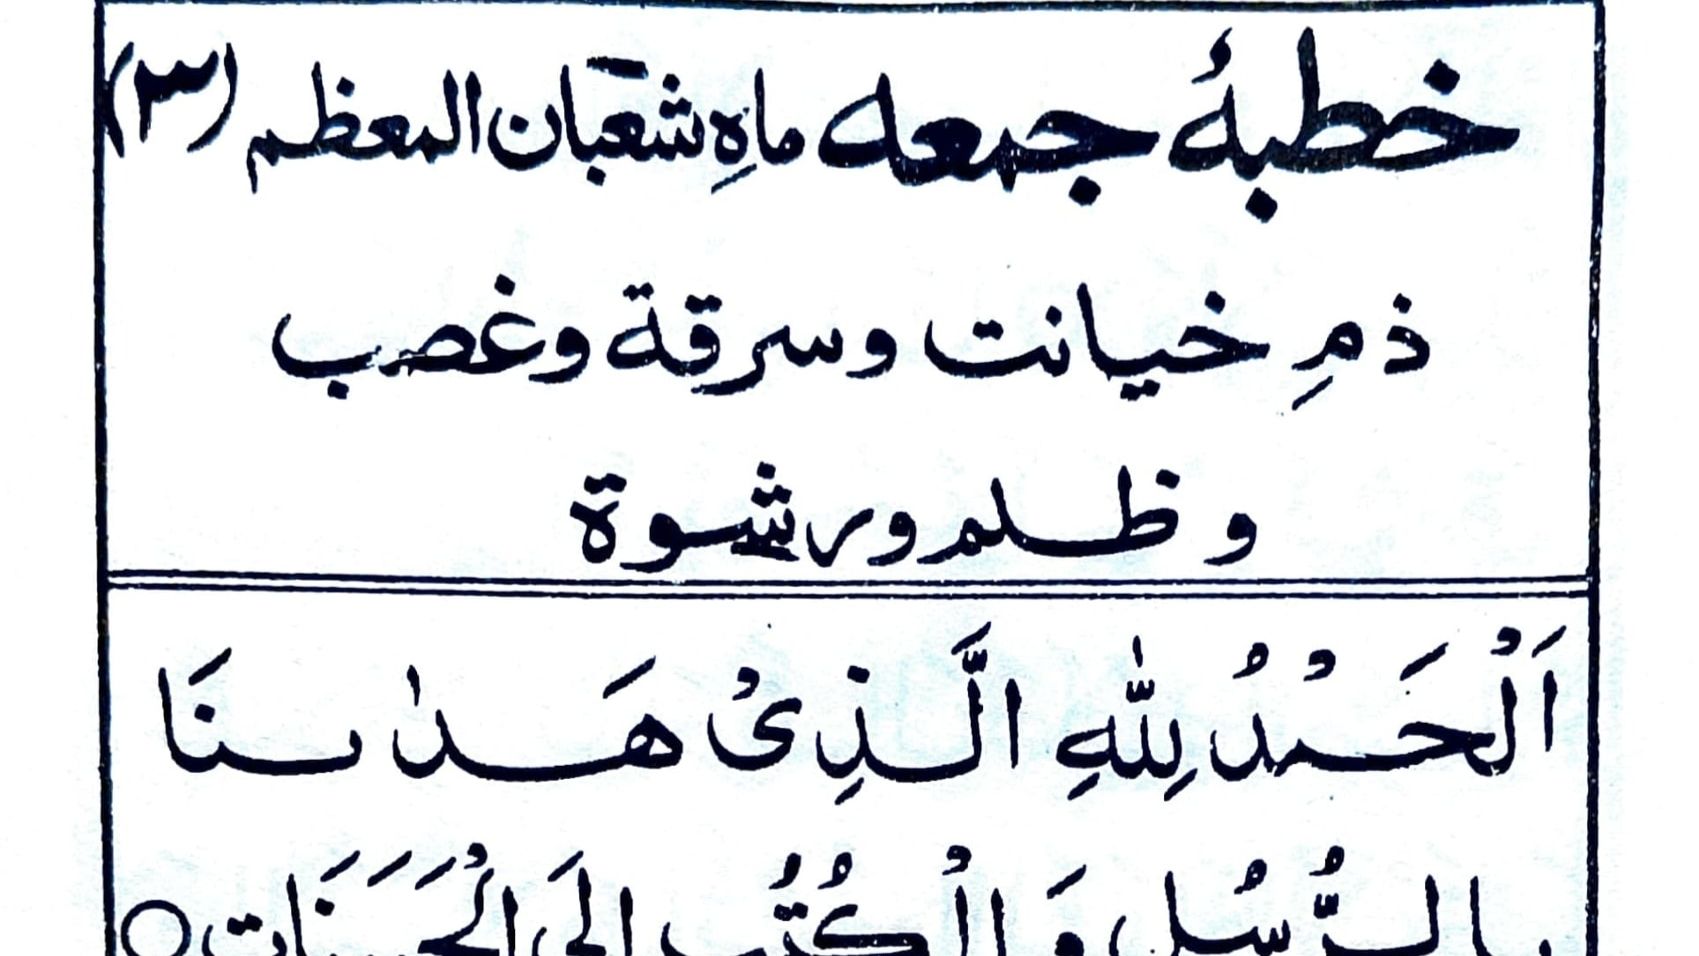 خطبۂ جمعہ ماہِ شعبان المعظم (۳)
ذمِ خیانت وسرقة وغصب
و ظلم ورشوة
اَلْحَمْدُ لِلّٰهِ الَّذِىْ هَدٰىنَا
بِالرُّسُلِ وَالْكُتُبِ اِلَى الْحَسَنَاتِ ○